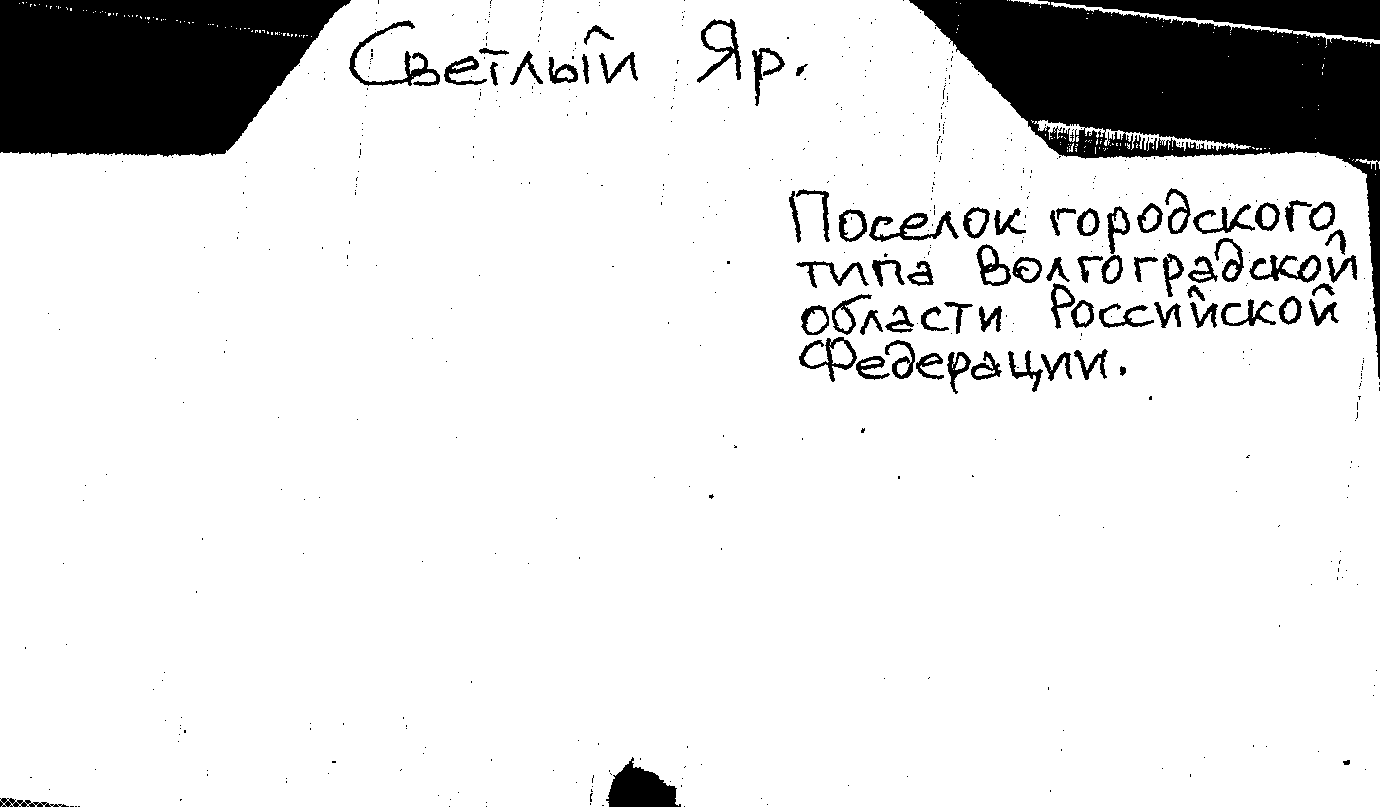 Светлый Яр.
Поселок городского
типа Волгоградской
области Российской
Федерации.